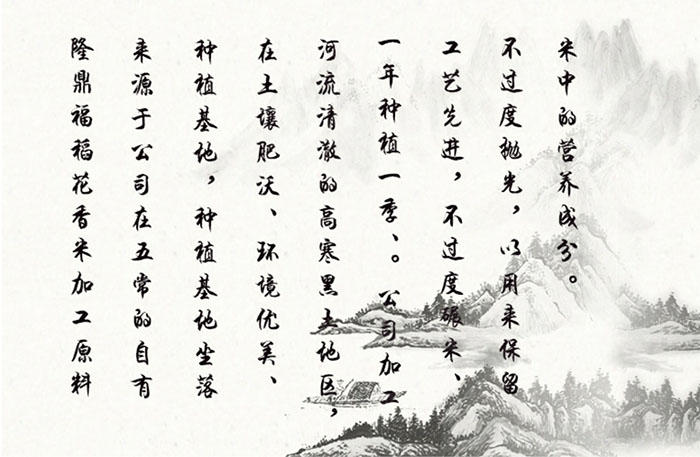 隆鼎福稻花香米加工原料
来源于公司在五常的自有
种植基地，种植基地坐落
在土壤肥沃、环境优美、
河流清澈的高寒黑土地区，
一年种植一季、。公司加工
工艺先进，不过度碾米、
不过度抛光，以用来保留
米中的营养成分。